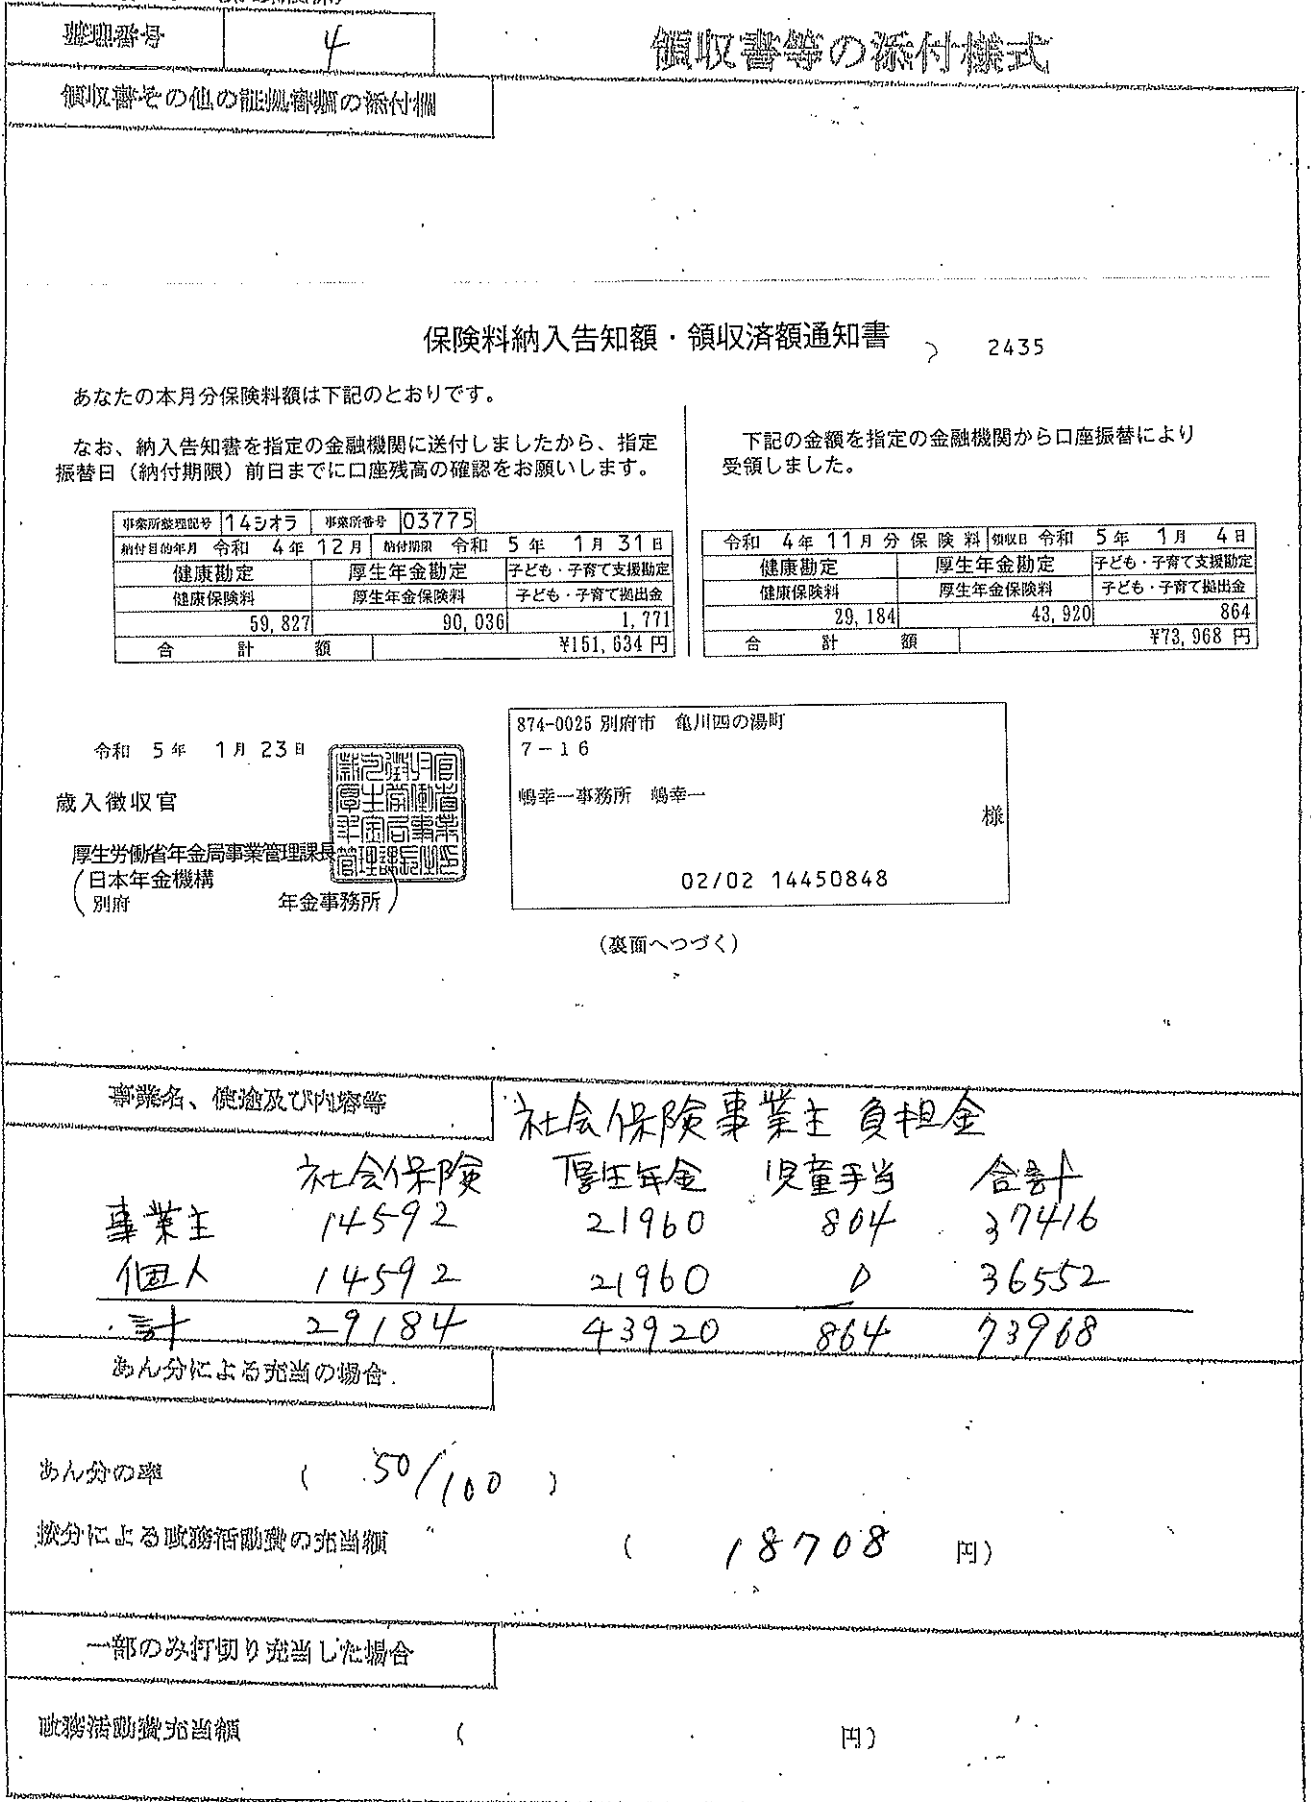 整理番号 4
領収書等の添付様式
領収書その他の証拠書類の添付欄
保険料納入告知額・領収済額通知書 2435
あなたの本月分保険料額は下記のとおりです。
なお、納入告知書を指定の金融機関に送付しましたから、指定
振替日（納付期限）前日までに口座残高の確認をお願いします。
下記の金額を指定の金融機関から口座振替により
受領しました。
事業所整理記号 14シオラ 事業所番号 03775
納付目的年月 令和 4年 12月 納付期限 令和 5年 1月 31日
健康勘定 厚生年金勘定 子ども・子育て支援勘定
健康保険料 厚生年金保険料 子ども・子育て拠出金
59,827 90,036 1,771
合計額 ¥151,634 円
令和 4年 11月分保険料 領収日 令和 5年 1月 4日
健康勘定 厚生年金勘定 子ども・子育て支援勘定
健康保険料 厚生年金保険料 子ども・子育て拠出金
29,184 43,920 864
合計額 ¥73,968 円
令和 5年 1月 23日
歳入徴収官
厚生労働省年金局事業管理課長
（日本年金機構
別府 年金事務所）
874-0025 別府市 亀川四の湯町
7－16
嶋幸一事務所 嶋幸一
様
02/02 14450848
（裏面へつづく）
事業名、使途及び内容等 社会保険事業主負担金
社会保険 厚生年金 児童手当 合計
事業主 14592 21960 864 37416
個人 14592 21960 0 36552
計 29184 43920 864 73968
あん分による充当の場合
あん分の率 （ 50/100 ）
按分による政務活動費の充当額 （ 18708 円）
一部のみ打切り充当した場合
政務活動費充当額 （ 円）